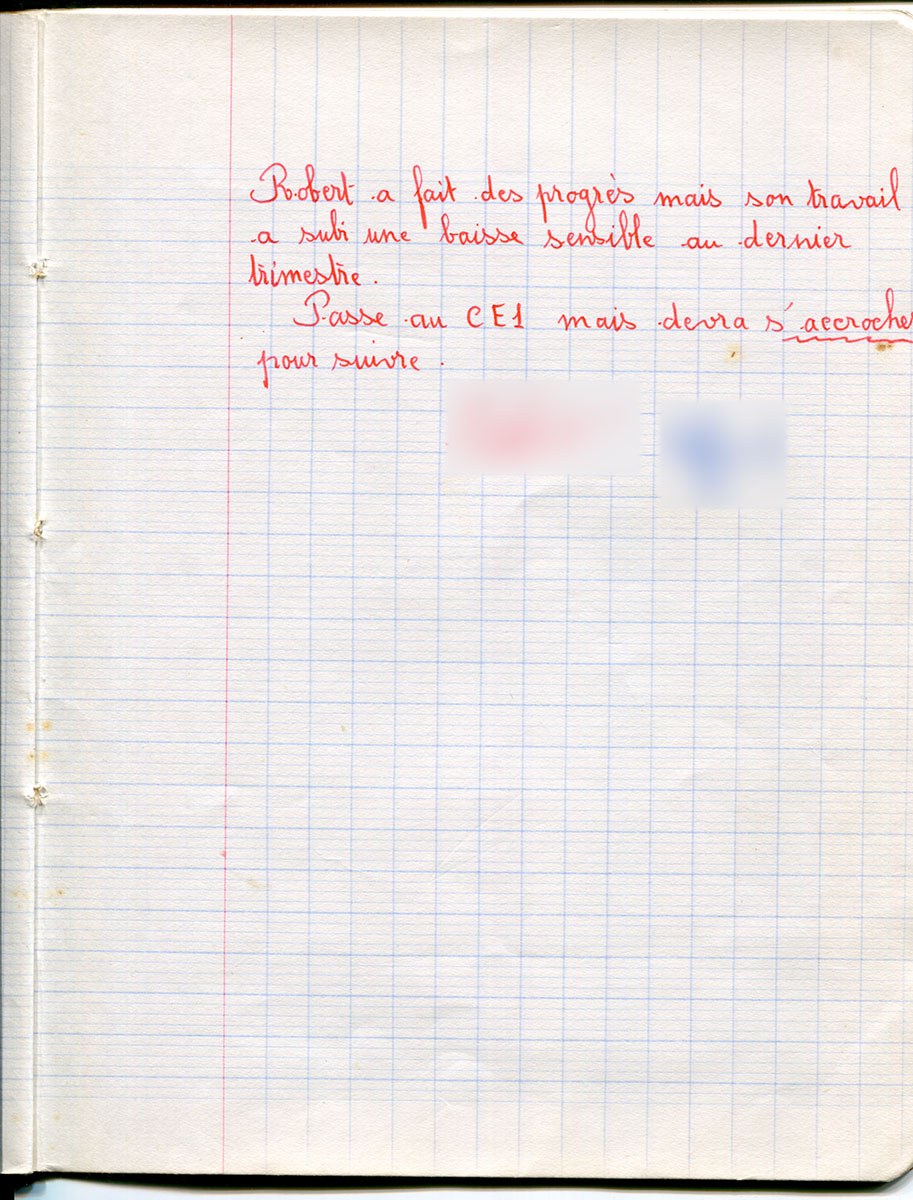 Robert a fait des progrès mais son travail
a subi une baisse sensible au dernier
trimestre.
Passe au CE1 mais devra s'accrocher
pour suivre.